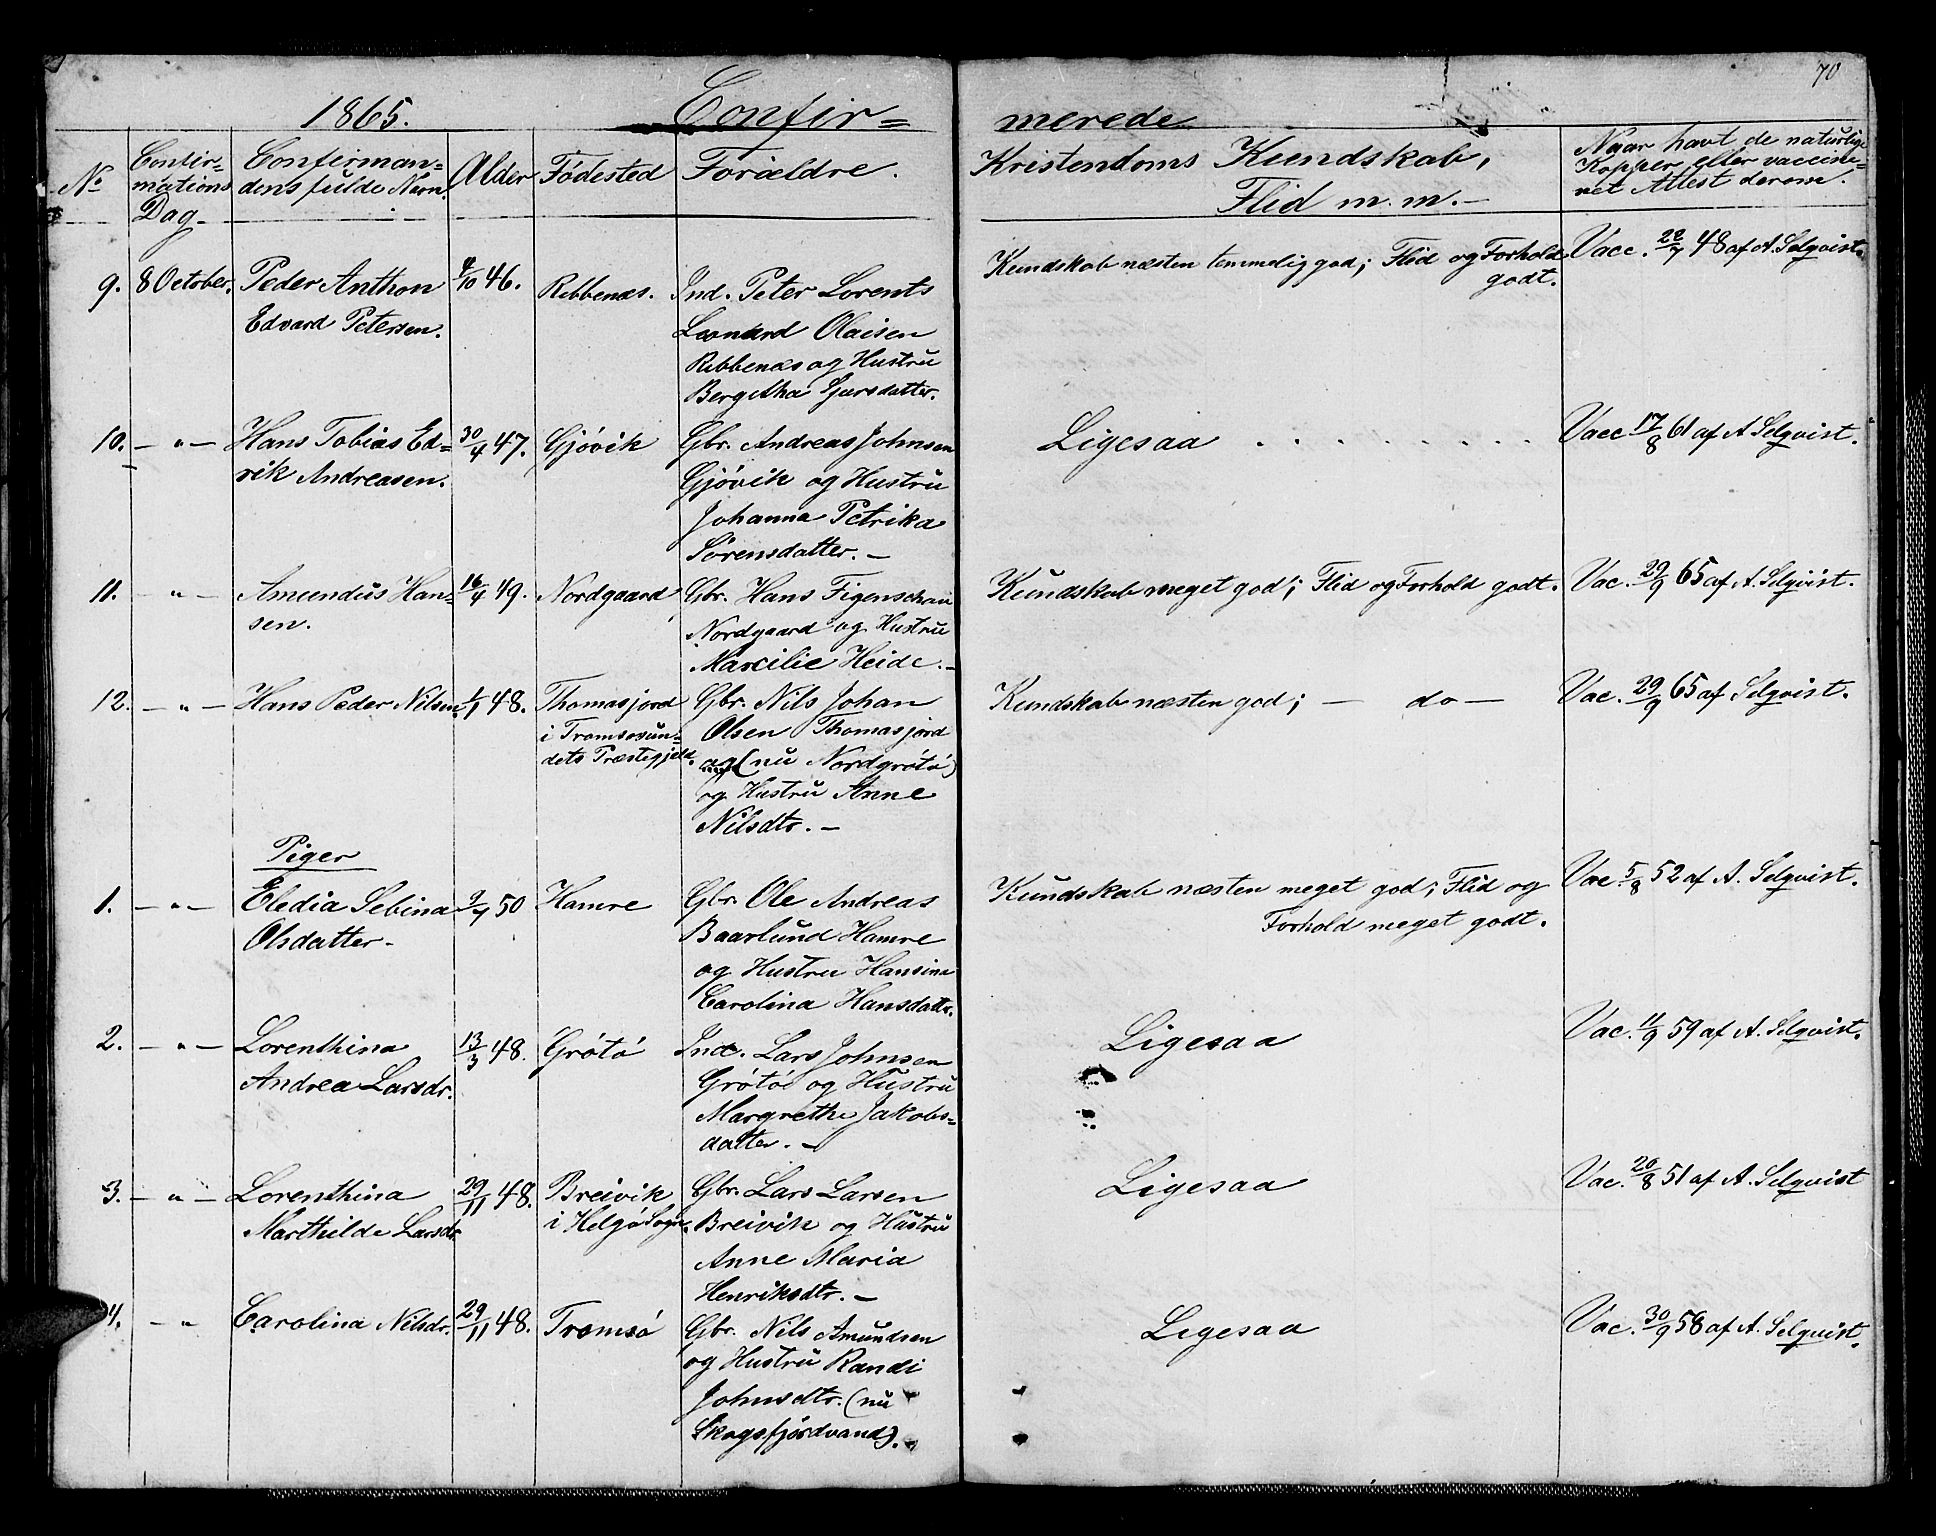 70
1865. Confir=
merede
No
Confir=
mations
Dag
Confirman=
dens fulde Navn.
Alder
Fødested
Forældre.
Kristendoms Kundskab,
Flid m. m. —
Naar havt de naturlige
Kopper eller vaccine-
ret Attest derom.
9. 8 October. Peder Anthon
Edvard Petersen.
4/10 46.
Ribbenæs.
Ind. Peter Lorents
Leonard Olaisen
Ribbenæs og Hustru
Bergitha Sjursdatter.
Kundskab næsten temmelig god; Flid og Forhold
godt.
Vacc. 22/7 48 af A. Selqvist.
10. — " — Hans Tobias Ed=
rik Andreasen.
30/4 47.
Gjövik
Gbr. Andreas Johnsen
Gjövik og Hustru
Johanna Petrika
Sörensdatter. —
Ligesaa . . . . . . . . .
Vacc 17/8 61 af A Selqvist.
11. — " — Amundus Han=
sen.
16/4 49.
Nordgaard
Gbr. Hans Figenschau
Nordgaard og Hustru
Marcilie Heide. —
Kundskab meget god; Flid og Forhold godt.
Vac. 29/9 65 af A. Selqvist.
12. — " — Hans Peder Nilsen.
1/1 48.
Thomasjord
i Tromsösun=
dets Præstegjeld.
Gbr. Nils Johan
Olsen Thomasjord
og (nu Nordgrötö)
og Hustru Anne
Nilsdtr. —
Kundskab næsten god; — do —
Vac. 29/9 65 af Selqvist.
Piger
1. — " — Eledia Sebina
Olsdatter —
2/7 50
Hamre
Gbr. Ole Andreas
Baarlund Hamre
og Hustru Hansina
Carolina Hansdattr.
Kundskab næsten meget god; Flid og
Forhold meget godt.
Vac. 5/8 52 af A. Selqvist.
2. — " — Lorenthina
Andrea Larsdr.
13/3 48.
Grötö
Ind. Lars Johnsen
Grötö og Hustru
Margrethe Jakobs=
datter. —
Ligesaa
Vac. 11/9 59 af A. Selqvist.
3. — " — Lorenthina
Marthilde Larsdr.
29/11 48.
Breivik
i Helgö Sogn.
Gbr. Lars Larsen
Breivik og Hustru
Anne Maria
Henriksdtr. —
Ligesaa
Vac. 20/8 51 af A. Selqvist
4. — " Carolina Nilsdr.
29/11 48.
Tromsö
Gbr. Nils Amundsen
og Hustru Randi
Johnsdtr. (nu
Skogsfjordvand).
Ligesaa
Vac. 30/9 58 af A. Selqvist.